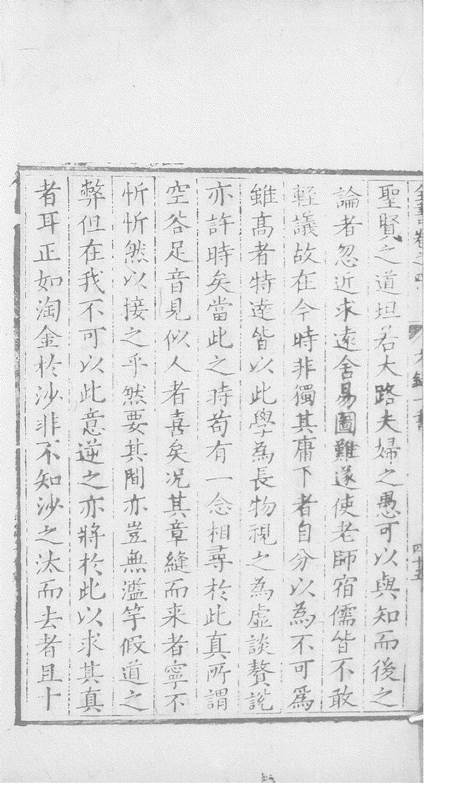 聖賢之道坦若大路夫婦之愚可以與知而後之
論者忽近求遠舍易圖難遂使老師宿儒皆不敢
輕議故在今時非獨其庸下者自分以為不可為
雖高者特達皆以此學為長物視之為虛談贅說
亦許時矣當此之時苟有一念相尋於此真所謂
空谷足音見似人者喜矣况其章縫而来者寧不
忻忻然以接之乎然要其間亦豈無濫竽假道之
弊但在我不可以此意逆之亦將於此以求其真
者耳正如淘金於沙非不知沙之汰而去者且十